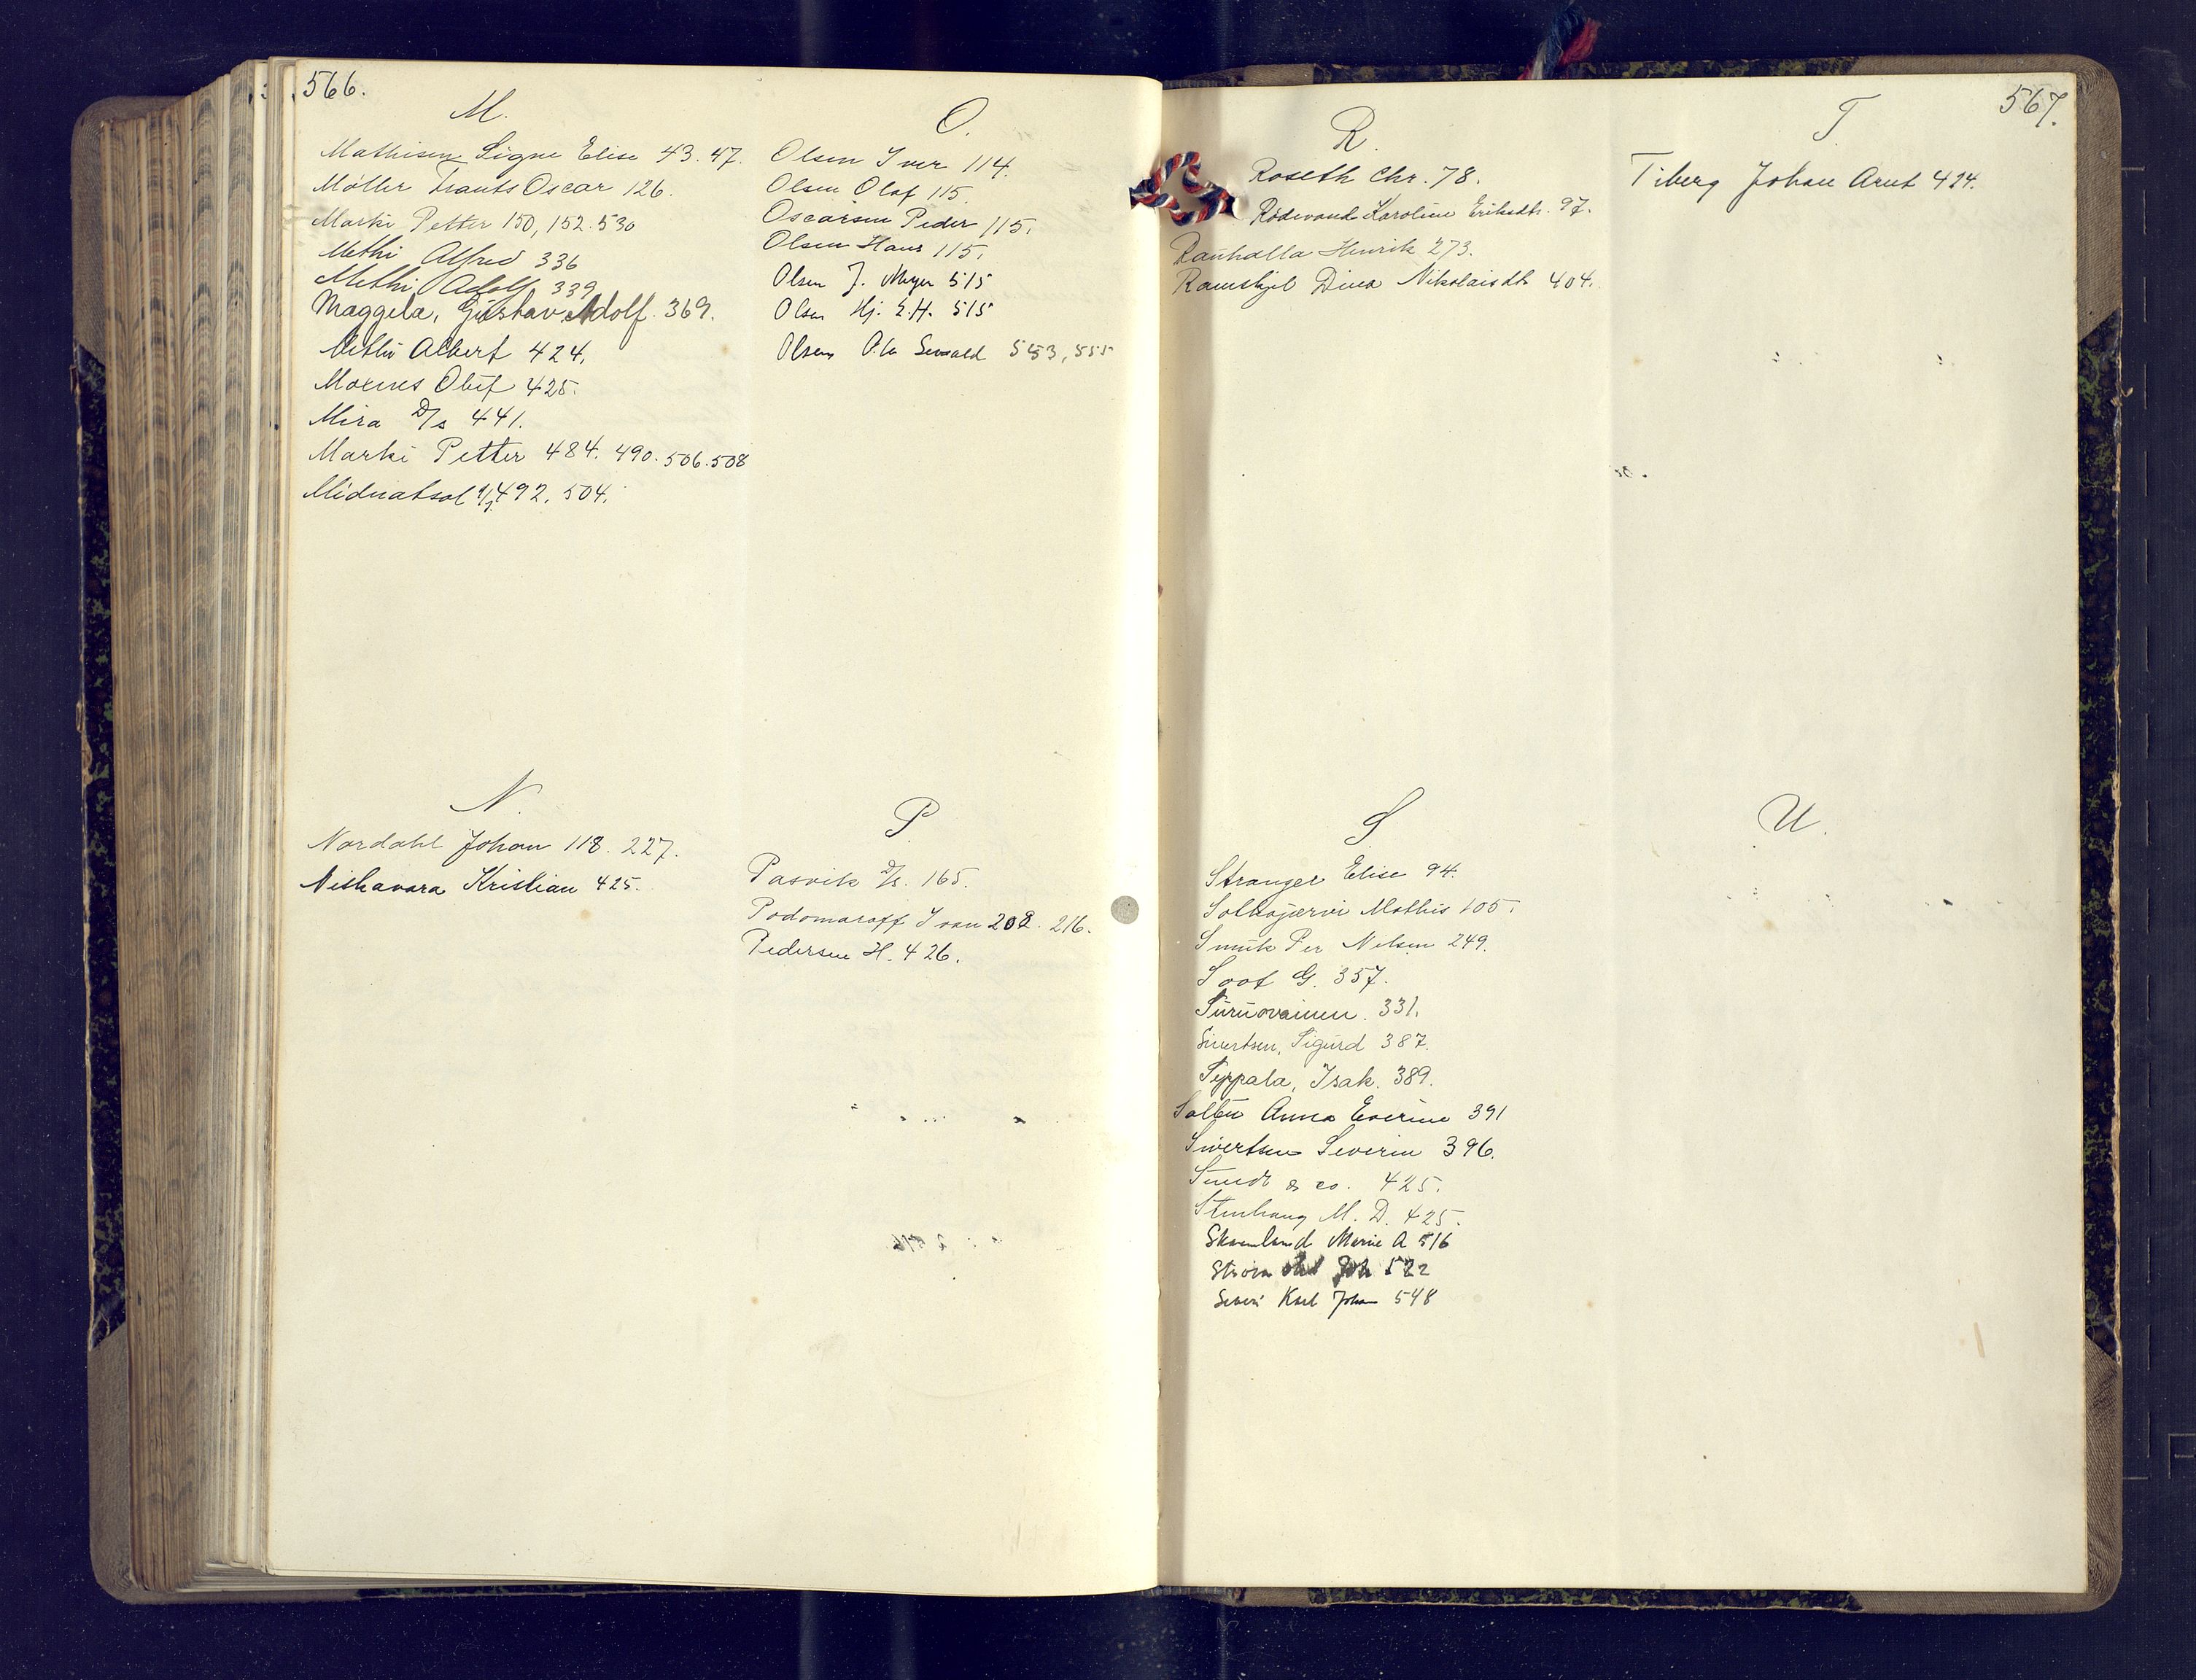 566.
M.
Mathisen Signe Elise 43. 47.
Möller Frants Oscar 126.
Marki Petter 150, 152. 530
Methi Alfred 336
Methi Adolf 339
Maggela, Gustav Adolf. 369.
Methi Albert 424.
Moenes Oluf 425.
Mira D/s 441.
Marki Petter 484. 490. 506. 508
Midnatsol 492. 504.
O.
Olsen Iver 114.
Olsen Olaf 115.
Oscarsen Peder 115.
Olsen Hans 115.
Olsen J. Meyer 515
Olsen Hj. E.H. 515
Olsen Sevald 553, 555
N.
Nordahl Johan 118. 227.
Niskavara Kristian 425.
P.
Pasvik D/s. 165.
Podomaroff Ivan 208. 216.
Pedersen H. 426.
567.
R.
Roseth Chr. 78.
Rödevand Karoline Eriksdtr. 97.
Rauhalla Henrik 273.
Ramskjel Dina Nikolaisdtr 404.
T.
Tiberg Johan Arnt 424.
S
Stranger Elise 94.
Solkojærvi Mathis 105.
Smuk Per Nilsen 249.
Soot G. 357.
Suruovainen. 331.
Sivertsen, Sigurd 387.
Seppala, Isak. 389.
Anna Everine 391
Sivertsen Severin 396.
Sundt & co. 425.
Stenhaug M. D. 425.
Skaanland Marie A 516
Strøm 522
Karl Johan 548
U.